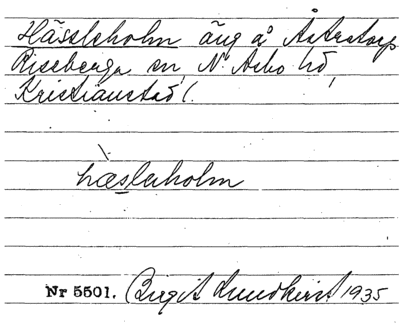 Hässleholm äng å Åstarstorp
Riseberga sn, N. Asbo hd,
Kristianstad l.
hæsleholm
Nr 5501. Birgit Lundkvist 1935